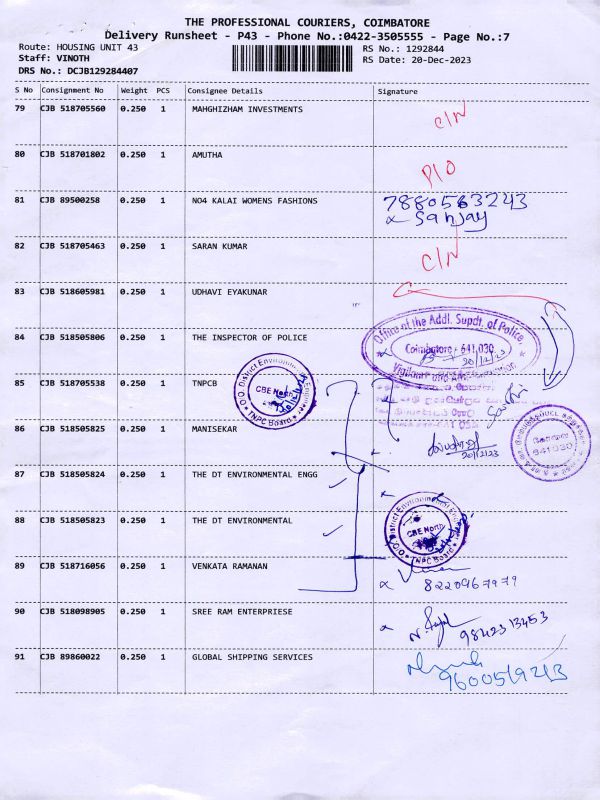 THE PROFESSIONAL COURIERS, COIMBATORE
Delivery Runsheet - P43 - Phone No.:0422-3505555 - Page No.:7
Route: HOUSING UNIT 43 RS No.: 1292844
Staff: VINOTH RS Date: 20-Dec-2023
DRS No.: DCJB129284407
S No Consignment No Weight PCS Consignee Details Signature
79 CJB 518705560 0.250 1 MAHGHIZHAM INVESTMENTS C/N
80 CJB 518701802 0.250 1 AMUTHA P/O
81 CJB 89500258 0.250 1 NO4 KALAI WOMENS FASHIONS 7880563243
Sanjay
82 CJB 518705463 0.250 1 SARAN KUMAR C/N
83 CJB 518605981 0.250 1 UDHAVI EYAKUNAR
84 CJB 518505806 0.250 1 THE INSPECTOR OF POLICE
Office of the Addl. Supdt. of Police,
Coimbatore - 641 030
20/12/23
Vigilance and
85 CJB 518705538 0.250 1 TNPCB
O/O. District Environmental
CBE North
TNPC Board
86 CJB 518505825 0.250 1 MANISEKAR
20/12/23
641 030
87 CJB 518505824 0.250 1 THE DT ENVIRONMENTAL ENGG
88 CJB 518505823 0.250 1 THE DT ENVIRONMENTAL
O/O. District Environmental
CBE North
TNPC Board
89 CJB 518716056 0.250 1 VENKATA RAMANAN
8220967979
90 CJB 518098905 0.250 1 SREE RAM ENTERPRIESE
9842313453
91 CJB 89860022 0.250 1 GLOBAL SHIPPING SERVICES
9600519213